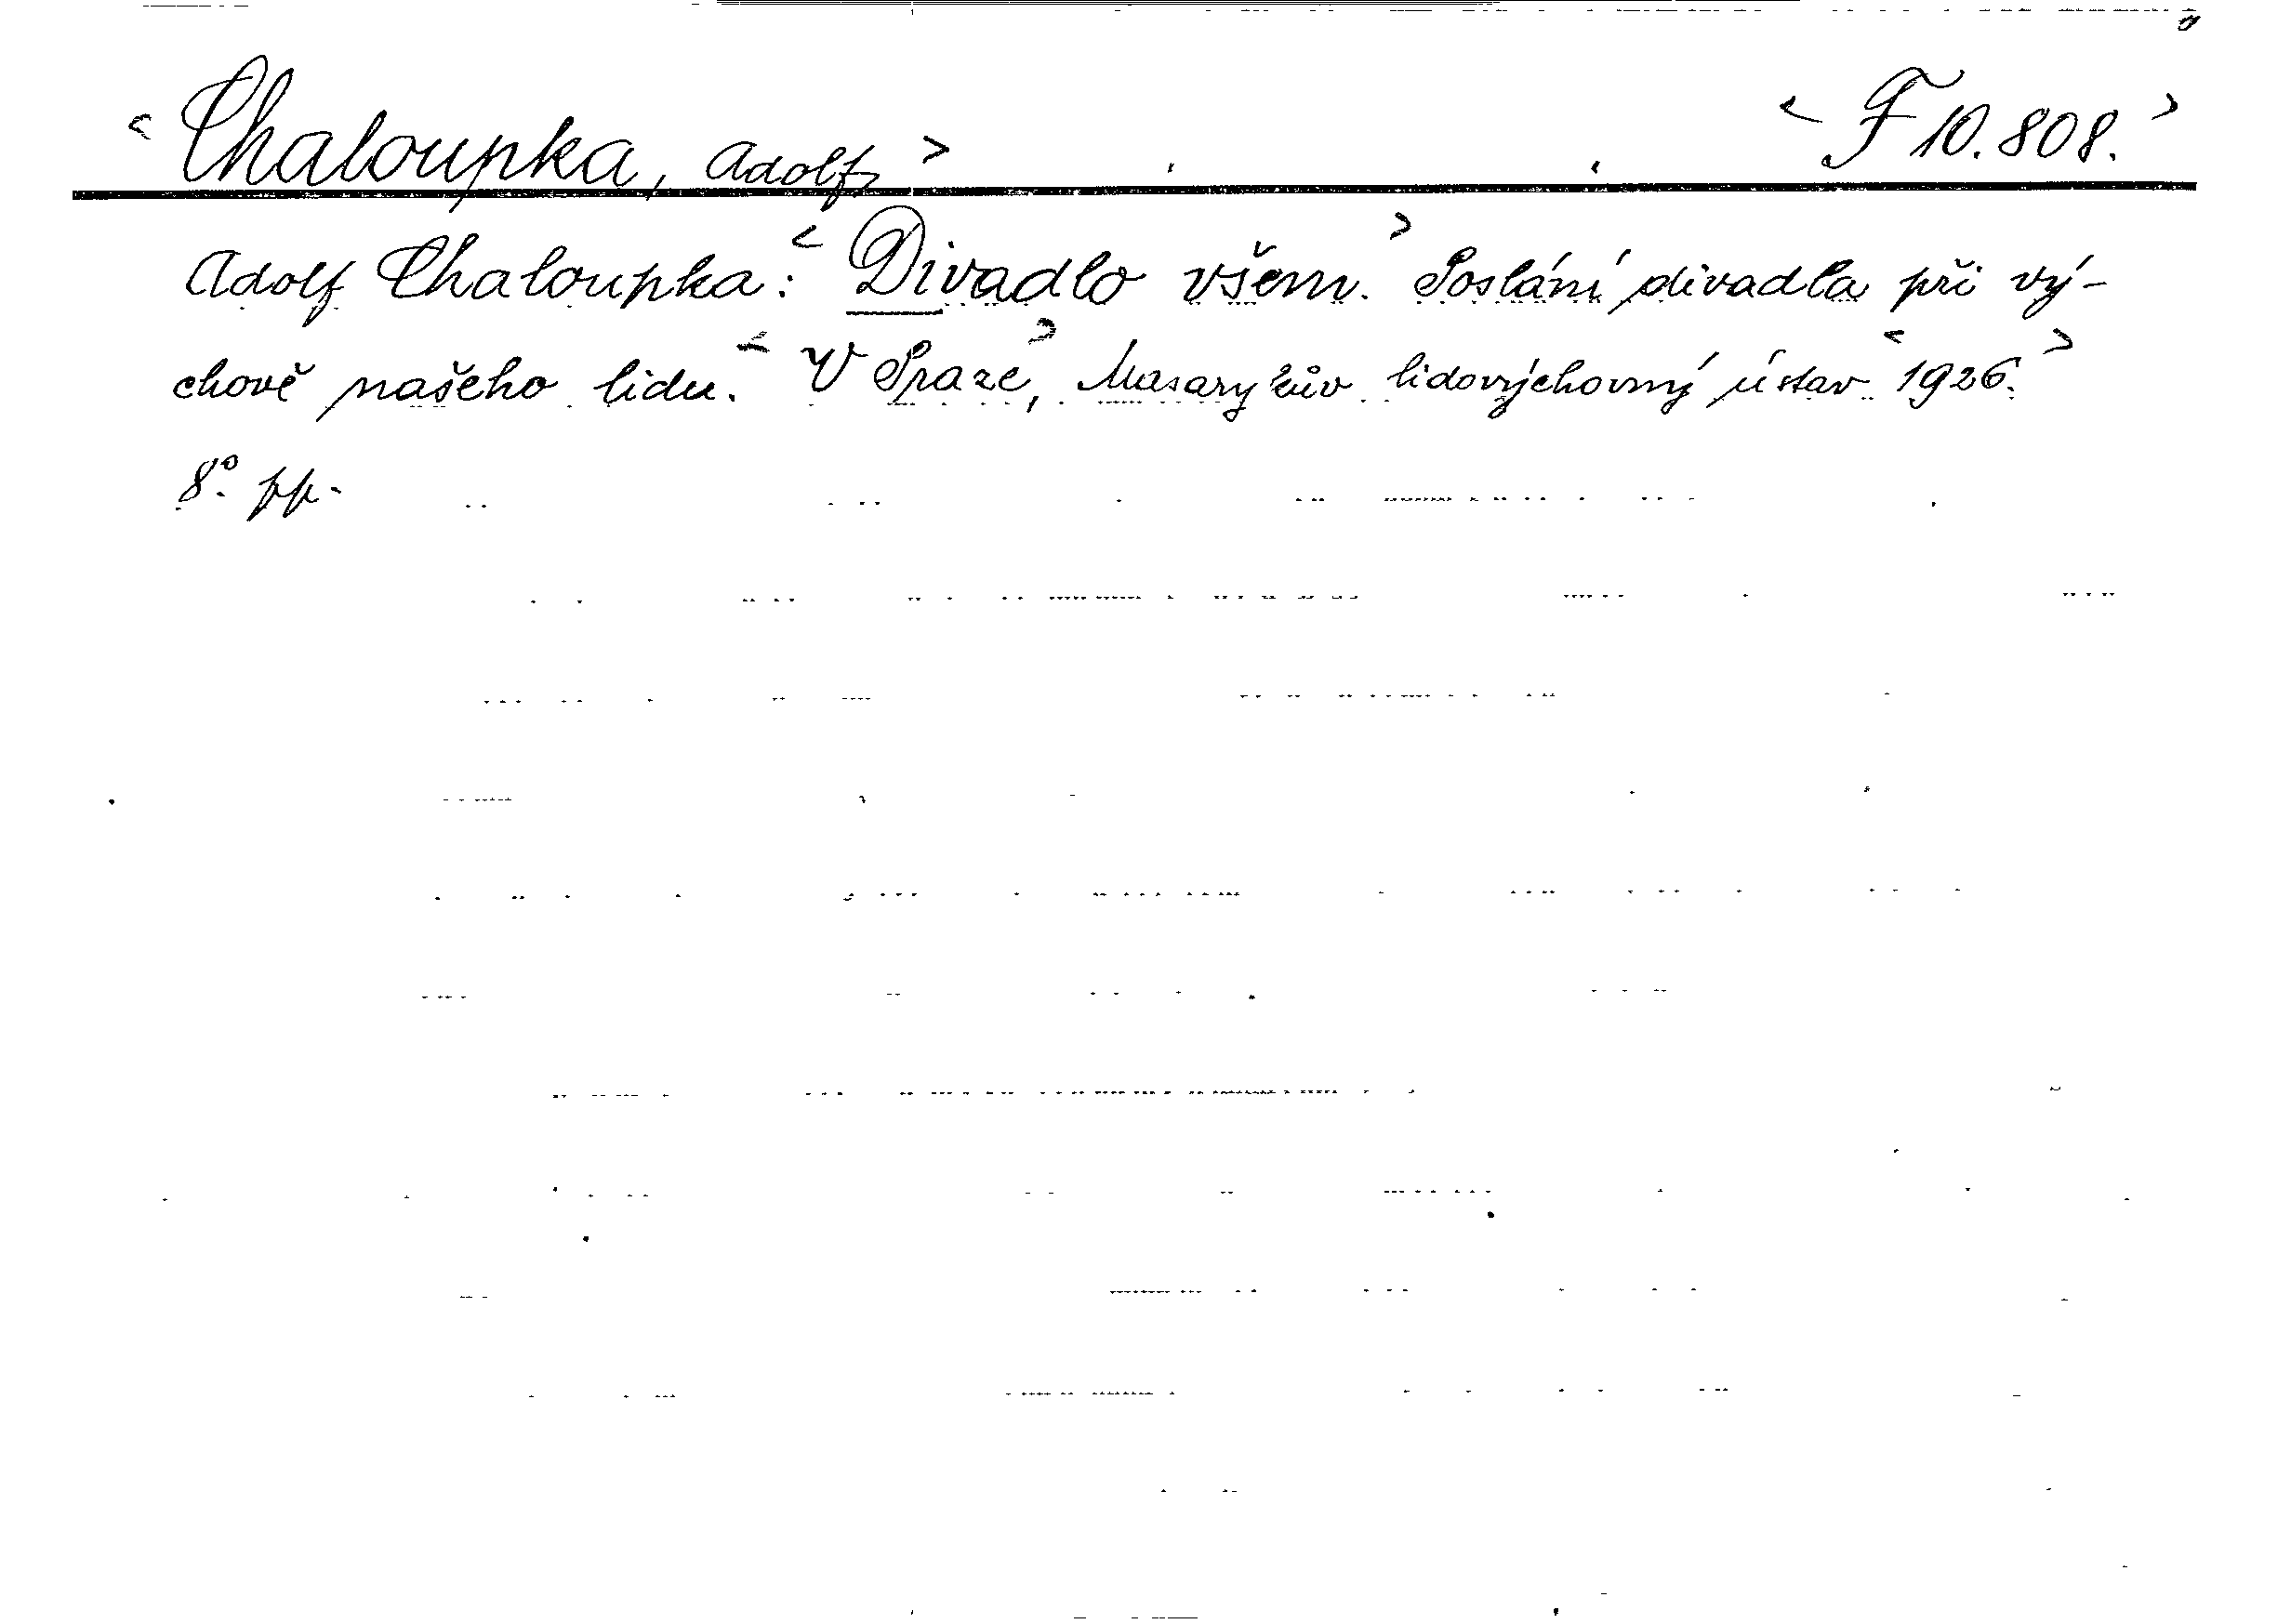 < Chaloupka, Adolf > < F 10.808. >
Adolf Chaloupka: < Divadlo všem. > Poslání divadla při vý-
chově našeho lidu. < V Praze, > Masarykův lidovýchovný ústav < 1926. >
8°. pp.